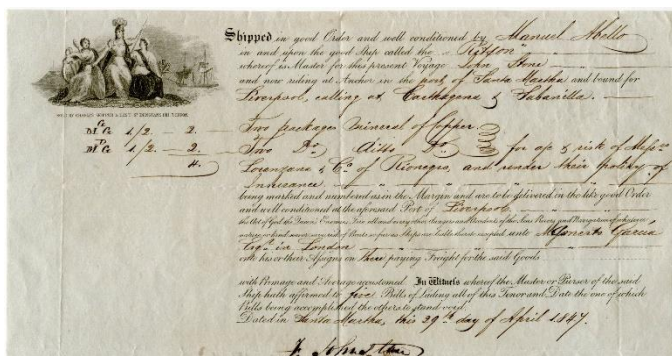 Shipped in good Order and well conditioned by Manuel Abello
in and upon the good Ship called the "Kitson"
whereof is Master for this present Voyage John Stone
and now riding at Anchor in the port of Santa Martha and bound for
Liverpool, calling at Carthagena & Sabanilla.
M G 1/2. — 2. — Two packages mineral of Copper.
M G 1/2. — 2. Two Do. Ditto Do. for a/c & risk of Messrs
4. Lorenzana & Co. of Rionegro, and render their policy of
Insurance
being marked and numbered as in the Margin and are to be delivered in the like good Order
and well conditioned at the aforesaid Port of Liverpool
unto Garcia
Esqre in London
or to his or their Assigns on paying Freight for the said Goods
with Primage and Average accustomed. In Witness whereof the Master or Purser of the said
Ship hath affirmed to five Bills of Lading all of this Tenor and Date the one of which
Bills being accomplished the others to stand void.
Dated in Santa Martha, this 29th day of April 1847.
John Stone